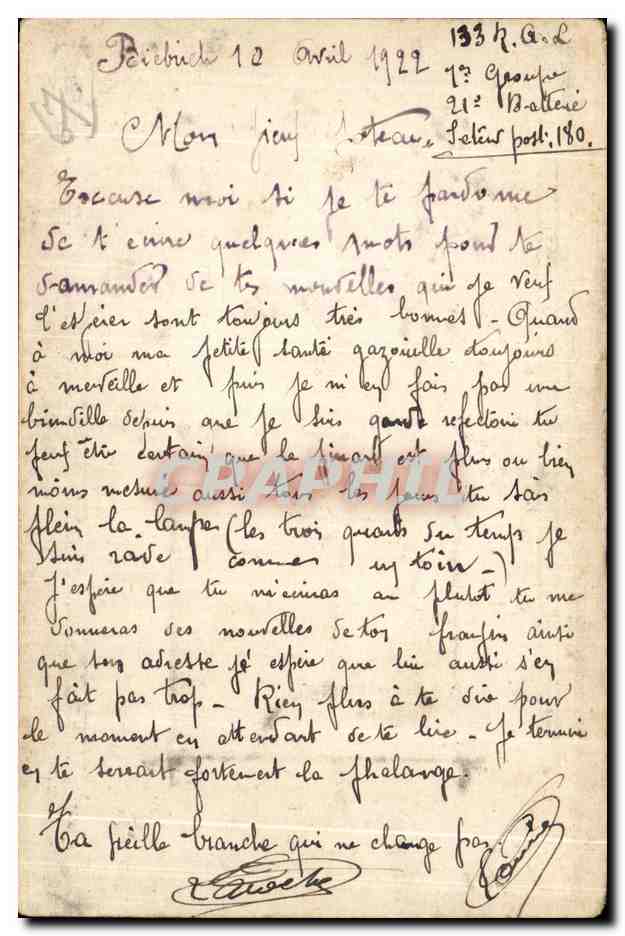 Biebrich 12 Avril 1922
133 R.A.L
7e Groupe
21e Batterie
Secteur postl. 180.
Mon vieux poteau,
Excuse moi si je te
de t'ecrire quelques mots pour te
demander de tes nouvelles que je veux
l'espérer sont toujours très bonnes - Quand
à moi ma petite santé gazouille toujours
à merveille et puis je m'en fais pas une
brindille depuis que je suis garde refectoire tu
peux être certain que le pinard est plus ou bien
moins mesuré aussi tous les jours tu sais
plein la lampe (les trois quarts du temps je
suis raide comme un toin -)
J'espère que tu m'ecriras au plutot tu me
donneras des nouvelles de ton frangin ainsi
que son adresse j'espère que lui aussi s'en
fait pas trop - Rien plus à te dire pour
le moment en attendant de te lire - Je termine
en te serrant fortement la phalange.
Ta vieille branche qui ne change pas
CPAPHIL